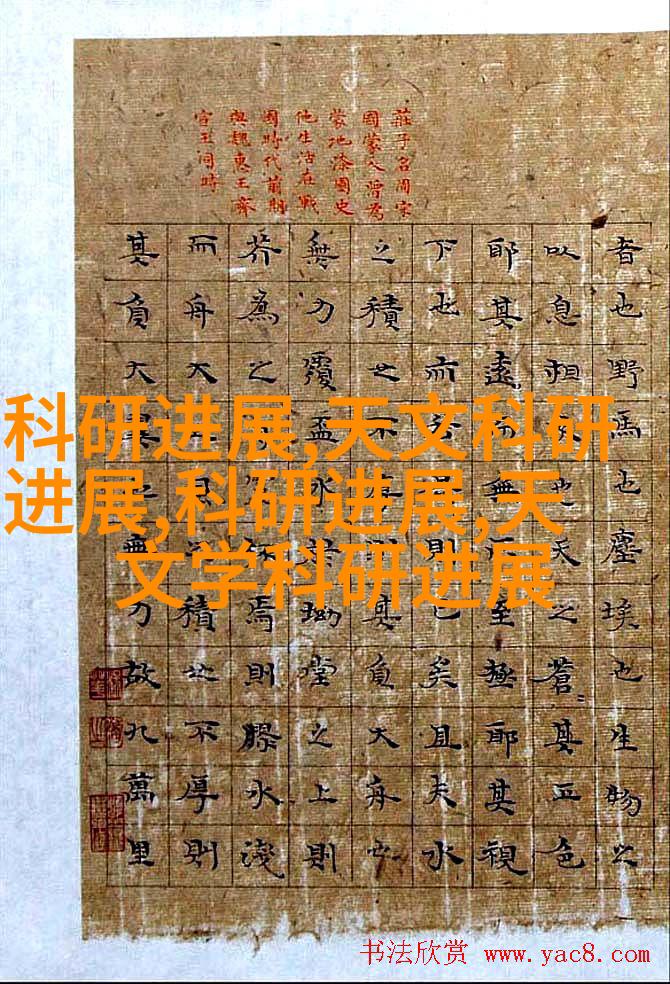 莊子名周宋
國蒙人曾為
蒙地漆園史
他生活在戰
國時代前期
與魏惠王齊
宣王同時
者也野馬也塵埃也生物之
以息相吹也天之蒼〻其正色
耶其遠而無所至極耶其視
下也而若是則已矣且夫水
之積也不厚則其負大舟也
無力覆盃水於坳堂之上則
芥為之焉則膠水淺
而舟大也積也不厚則
其負大翼也無力故九萬里
科研进展,天文科研
进展,科研进展,天
文学科研进展
书法欣赏 www.yac8.com